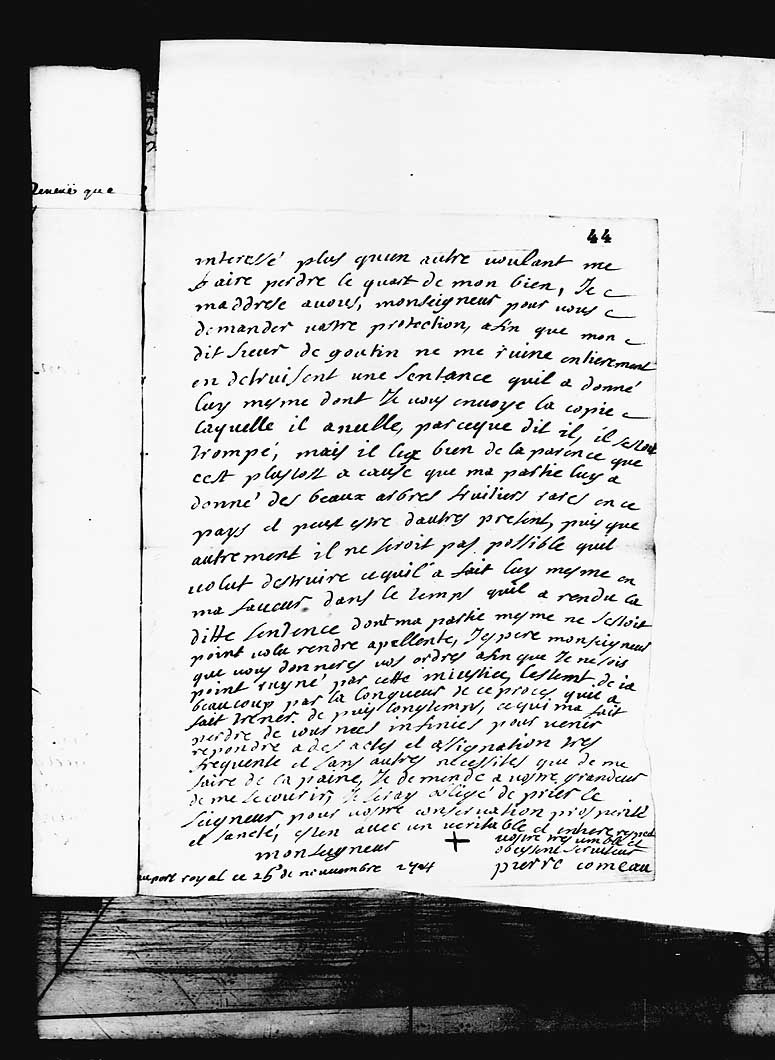 44
que
interessé plus quun autre voulant me
faire perdre le quart de mon bien, Je
maddrese avous, monseigneur pour vous
demander vostre protection, afin que mon
dit sieur de goutin ne me ruine entierement
en detruisent une sentance quil a donné
luy mesme dont Je vous envoye la copie
laquelle il anulle, parceque dit il, il sestoit
trompé, mais il bien de la parence que
cest plustost a cause que ma partie luy a
donné des beaux arbres fruitiers rares en ce
pays et peust estre dautres present, puis que
autrement il ne seroit pas possible quil
volut destruire cequil a fait luy mesme en
ma faveur dans le temps quil a rendu la
ditte sentence dont ma partie mesme ne sestoit
point volu rendre apellente, Jespere monseigneur
que vous donneres vos ordres afin que Je ne sois
point ruyné par cette iniustice, lestent de ia
beaucoup par la longueur de ce proces quil a
fait trener de puis longtemps, cequi ma fait
perdre de iournees infinies pour venir
repondre a des actes et assignation tres
frequente et sans autres necessites que de me
faire de la paine, Je demende a vostre grandeur
de me secourir, Je seray obligé de prier le
seigneur pour vostre conservation prosperité
et sancté, esten avec un veritable et entiere respect
monseigneur
vostre tres umble et
obeissent serviteur
+ pierre comeau
au port royal ce 26e de novembre 1704